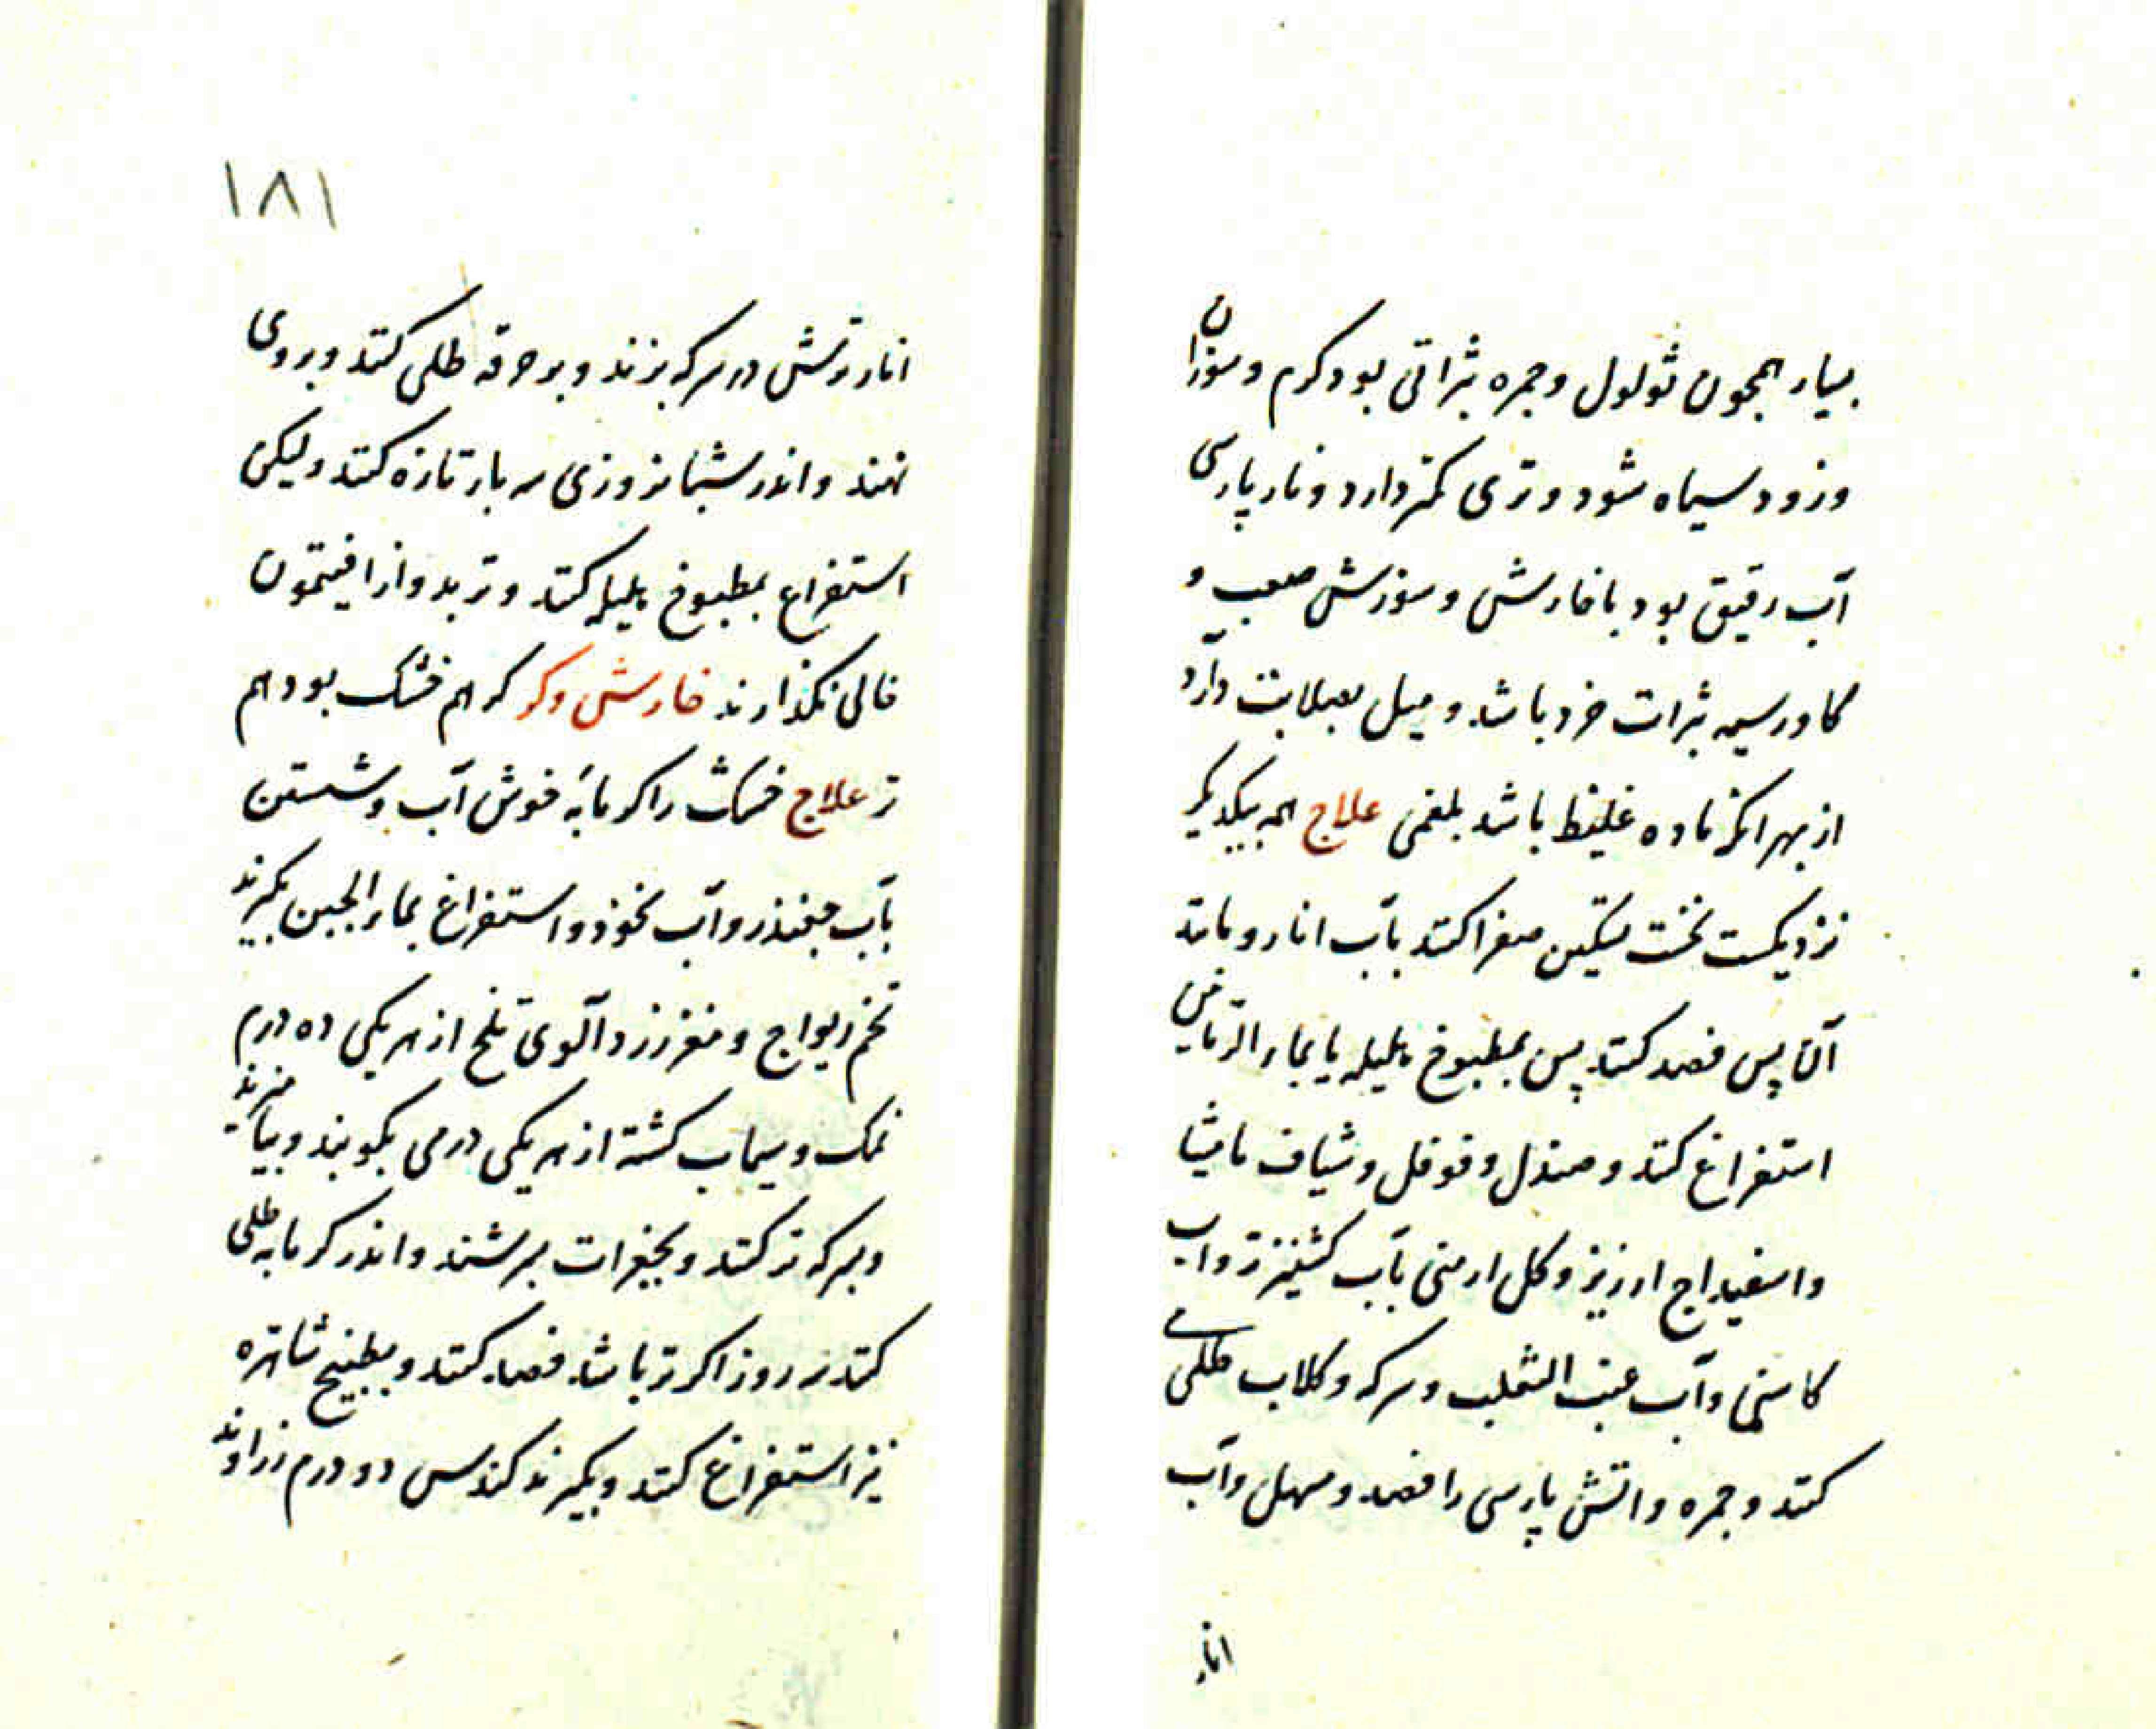 بسیار همچون ثولول وجمره بثراتی بود کرم وسوزان
وزود سیاه شود وتری کمتر دارد ونار پارسی
آب رقیق بود با خارش وسوزش صعب و
کاورسیه بثرات خرد باشد ومیل بصلابت دارد
از بهر انکه ماده غلیظ باشد بلغمی علاج همه بیکدیکر
نزدیکست نخست تسکین صفرا کنند بآب انار ومانند
آن پس فصد کنند پس بمطبوخ هلیله یا بماء الرمانین
استفراغ کنند وصندل وفوفل وشیاف مامیثا
واسفیداج ارزیز وکل ارمنی بآب کشنیز تر وآب
کاسنی وآب عنب الثعلب وسرکه وکلاب طلی
کنند وجمره واتش پارسی را فصد ومسهل وآب
انار
۱۸۱
انار ترش در سرکه بزند وبر خرقه طلی کنند وبروی
نهند واندر شبانروزی سه بار تازه کنند ولیکن
استفراغ بمطبوخ هلیله کنند وتربد واز افیتمون
خالی نکذارند خارش وکر کر هم خشک بود هم
تر علاج خشک را کرمابه خوش آب وشستن
بآب چغندر وآب نخود واستفراغ بماء الجبن بکیرند
تخم ریواج ومغز زردآلوی تلخ از هر یکی ده درم
نمک وسیماب کشته از هر یکی درمی بکوبند وبیامیزند
وبسرکه تر کنند وبجغرات بسرشند واندر کرمابه طلی
کنند سه روز اکر تر باشد فصد کنند وبطبیخ شاهتره
نیز استفراغ کنند وبکیرند کندس دو درم زراوند